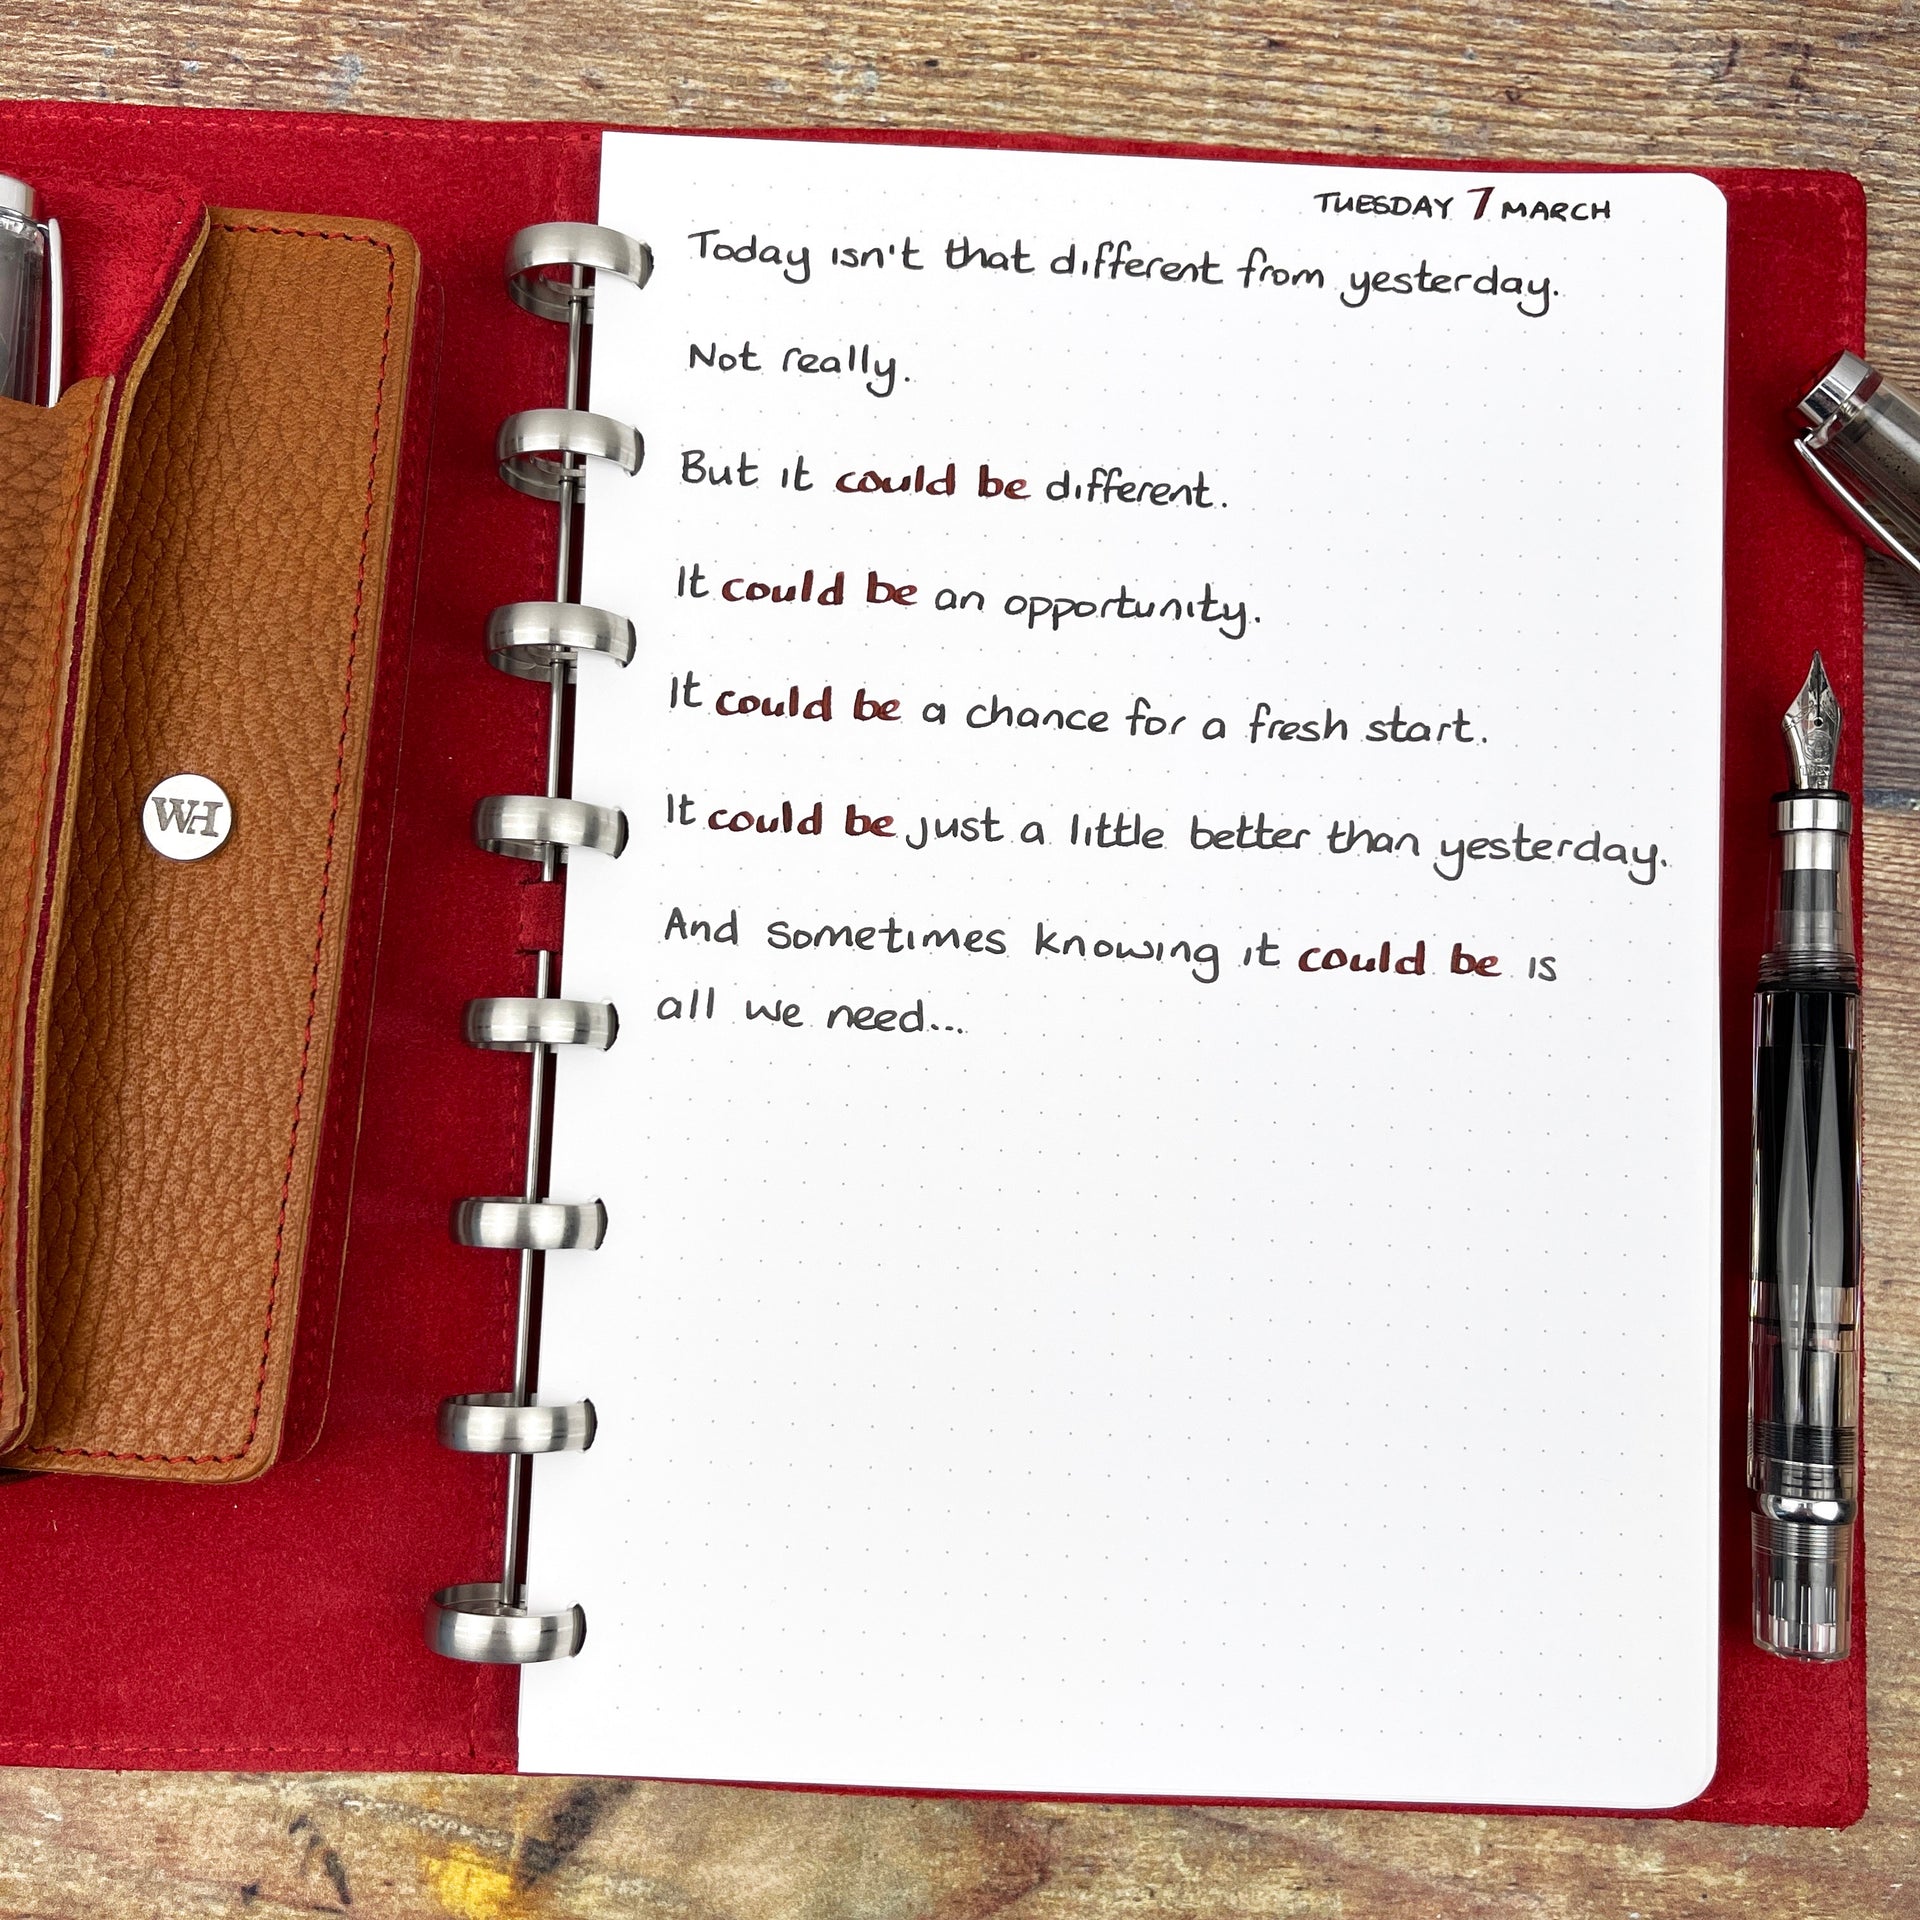 TUESDAY 7 MARCH
Today isn't that different from yesterday.
Not really.
But it could be different.
It could be an opportunity.
It could be a chance for a fresh start.
It could be just a little better than yesterday.
And sometimes knowing it could be is
all we need...
WH